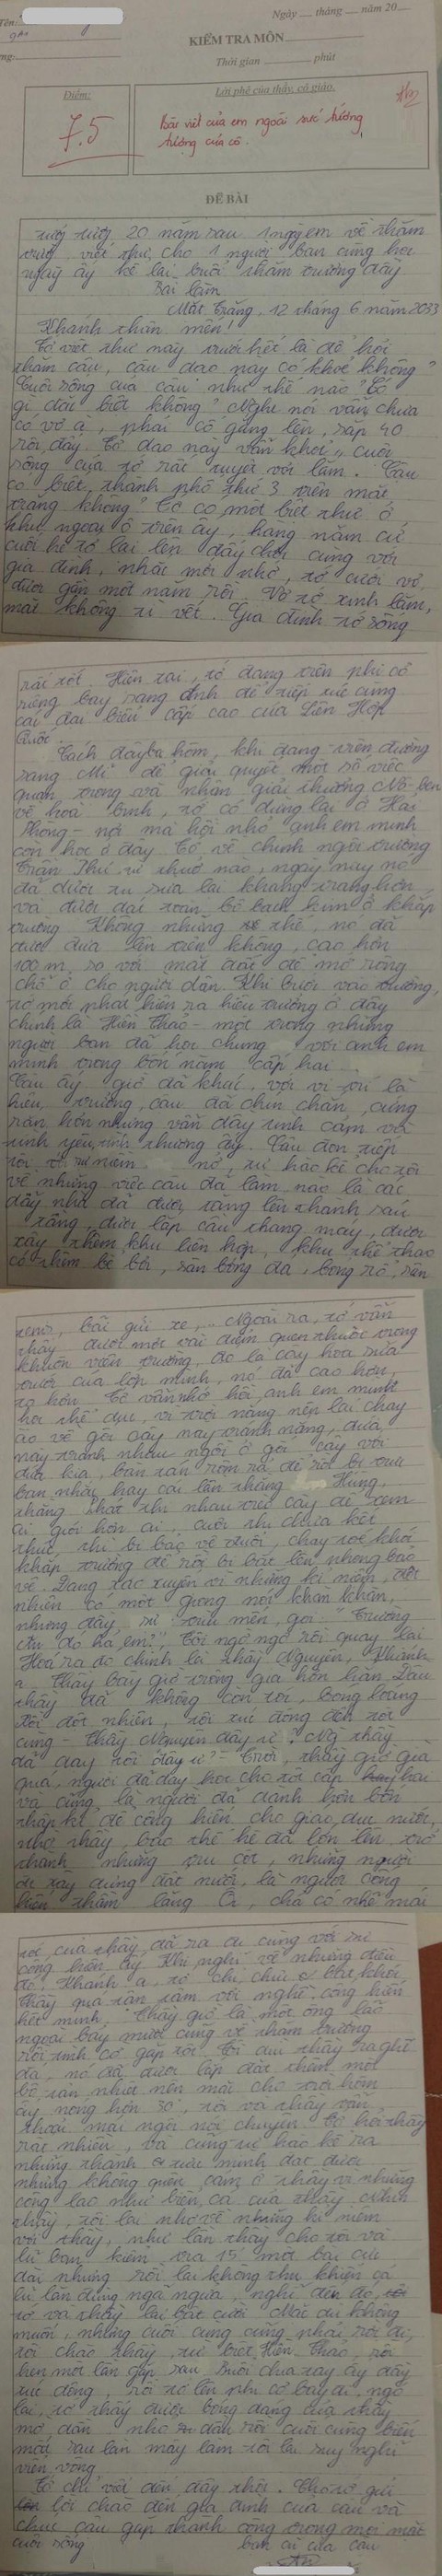 Tên:
Ngày ___ tháng ___ năm 20___
KIỂM TRA MÔN
Thời gian ________ phút
Điểm:
Lời phê của thầy, cô giáo.
7.5
Bài viết của em ngoài sức tưởng
tượng của cô.
ĐỀ BÀI
20 năm sau 1 ngày em về thăm
trường, viết thư cho 1 người bạn cùng học
ngày ấy kể lại buổi thăm trường đầy
Bài làm
Mặt Trăng, 12 tháng 6 năm 2033
Khánh thân mến!
Tớ viết thư này trước hết là để hỏi
thăm cậu, cậu dạo này có khoẻ không?
Cuộc sống của cậu như thế nào? Có
gì đặc biệt không? Nghe nói vẫn chưa
có vợ à, phải cố gắng lên, sắp 40
rồi đấy. Tớ dạo này vẫn khoẻ, cuộc
sống của tớ rất tuyệt vời lắm. Cậu
có biết thành phố thứ 3 trên mặt
trăng không? Tớ có một biệt thự ở
khu ngoại ô trên ấy, hàng năm cứ
cuối hè tớ lại lên đây chơi cùng với
gia đình, nhắc mới nhớ, tớ cưới vợ
được gần một năm rồi. Vợ tớ xinh lắm,
mặt không tì vết. Gia đình tớ sống
rất tốt. Hiện tại, tớ đang trên phi cơ
riêng bay sang để tiếp xúc cùng
các đại biểu cấp cao của Liên Hợp
Quốc.
Cách đây ba hôm, khi đang trên đường
sang Mĩ để giải quyết một số việc
quan trọng và nhận giải thưởng Nô-ben
về hoà bình, tớ có dừng lại ở Hải
Phòng - nơi mà hồi nhỏ anh em mình
còn học ở đây. Tớ về chính ngôi trường
Trần Phú từ thuở nào, ngày nay nó
đã được tu sửa lại khang trang hơn,
và được dát toàn bộ bạch kim ở khắp
trường. Không những thế, nó đã
được đưa lên trên không, cao hơn
100 m so với mặt đất để mở rộng
chỗ ở cho người dân. Khi bước vào trường,
tớ mới phát hiện ra hiệu trưởng ở đây
chính là Hiền Thảo - một trong những
người bạn đã học chung với anh em
mình trong bốn năm cấp hai.
Cậu ấy giờ đã khác, với vị trí là
hiệu trưởng, cậu đã chín chắn, cứng
rắn hơn nhưng vẫn đầy tình cảm và
tình yêu, tình thương ấy. Cậu đón tiếp
tôi nở, tự hào kể cho tôi
về những việc cậu đã làm nào là các
dãy nhà đã được tăng lên thành sáu
tầng, được lắp cầu thang máy, được
xây thêm khu liên hợp, khu thể thao
có thêm bể bơi, sân bóng đá, bóng rổ, sân
bãi gửi xe,... Ngoài ra, tớ vẫn
thấy được một vài điểm quen thuộc trong
khuôn viên trường, đó là cây hoa sữa
trước cửa lớp mình, nó đã cao hơn,
to hơn. Tớ vẫn nhớ hồi anh em mình
học thể dục, vì trời nắng nên lại chạy
ào về gốc cây này tránh nắng, đứa
này tranh nhau ngồi ở gốc cây với
đứa kia, bàn tán rôm rả để rồi bị
hay cái lần thằng Hùng,
thằng Phát thi nhau trèo cây để xem
ai giỏi hơn ai, cuối thi chưa kết
thúc, thì bị bác vệ đuổi, chạy toé khói
khắp trường để rồi bị bắt lên phòng bảo
vệ. Đang xao xuyến vì những kỉ niệm, đột
nhiên có một giọng nói khàn khàn,
nhưng đầy trìu mến, gọi: "Trường
đó hả em?", Tôi ngơ ngơ rồi quay lại
Hoá ra đó chính là thầy Nguyên, Khánh
ạ. Thầy bây giờ trông già hơn hẳn. Đầu
thầy đã không còn tóc, bóng loáng
Tôi đột nhiên, rồi xúc động đến tột
cùng - Thầy Nguyên đây ư? Người thầy
đã dạy tôi đây ư? - Trời, thầy giờ già
quá, người đã dạy học cho tôi cấp hai
và cũng là người đã dành hơn bốn
thập kỉ để cống hiến cho giáo dục nước,
nhờ thầy, bao thế hệ đã lớn lên, trở
thành những trụ cột, những người
xây dựng đất nước, là người cống
hiến thầm lặng. Ôi, chả có nhẽ mái
tóc của thầy đã ra đi cùng với sự
cống hiến ấy. Khi nghĩ về những điều
đó, Khánh ạ, tớ chỉ chực bật khóc.
Thầy quá tận tâm với nghề, cống hiến
hết mình. Thầy giờ là một ông lão
ngoài bảy mươi cũng về thăm trường
rồi tình cờ gặp tôi. Tôi thầy ra ghế
đá, nó đã được lắp đặt thêm một
bộ tản nhiệt nên mặc cho trời hôm
ấy nóng hơn 50°, tôi và thầy vẫn
thoải mái ngồi nói chuyện. Tớ hỏi thầy
rất nhiều, và cũng tự hào kể ra
những thành tựu mình đạt được
nhưng không quên cảm ơn thầy vì những
công lao như biển cả của thầy. Nhìn
thầy, tôi lại nhớ về những kỉ niệm
với thầy, như lần thầy cho tôi và
lũ bạn kiểm tra 15' một bài cực
dài nhưng rồi lại không thu khiến cả
lũ lăn đùng ngã ngửa, nghĩ đến đó,
tớ và thầy lại bật cười. Mặc dù không
muốn, nhưng cuối cùng cũng phải rời đi,
tôi chào thầy, từ biệt Hiền Thảo, rồi
hẹn một lần gặp sau. Buổi chia tay ấy đầy
xúc động, rồi tớ lên phi cơ bay đi, ngó
lại, tớ thấy được bóng dáng của thầy
mờ dần, nhỏ dần rồi cuối cùng biến
mất sau làn mây làm tôi lại suy nghĩ
viển vông.
Tớ chỉ viết đến đây thôi. Cho tớ gửi
lời chào đến gia đình của cậu và
chúc cậu gặp thành công trong mọi mặt
cuộc sống
bạn cũ của cậu